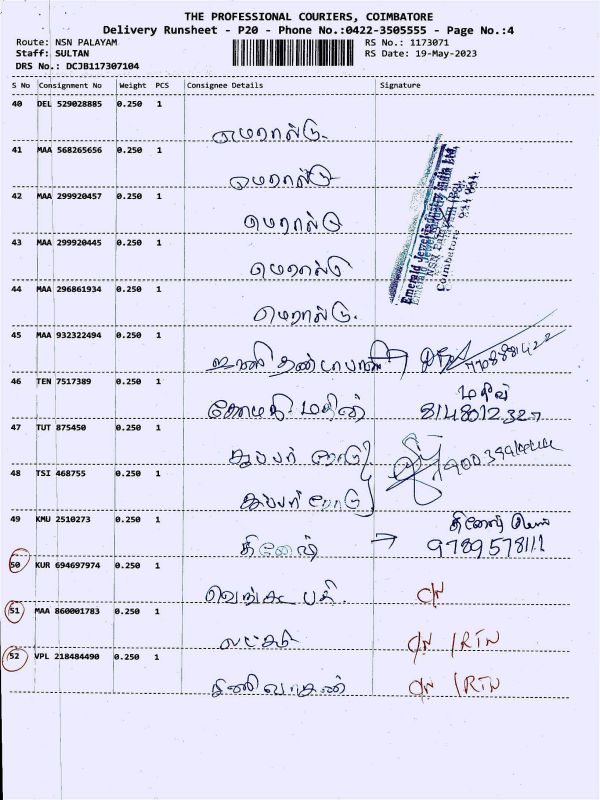 THE PROFESSIONAL COURIERS, COIMBATORE
Delivery Runsheet - P20 - Phone No.:0422-3505555 - Page No.:4
Route: NSN PALAYAM
RS No.: 1173071
Staff: SULTAN
RS Date: 19-May-2023
DRS No.: DCJB117307104
S No Consignment No Weight PCS Consignee Details Signature
40 DEL 529028885 0.250 1
எமரால்டு.
41 MAA 568265656 0.250 1
எமரால்டு
42 MAA 299920457 0.250 1
எமரால்டு
43 MAA 299920445 0.250 1
எமரால்டு
Emerald Jewel Industry India Ltd,
NSN Palayam (Po),
Coimbatore
44 MAA 296861934 0.250 1
எமரால்டு.
45 MAA 932322494 0.250 1
46 TEN 7517389 0.250 1
கோமதி மதின் 8148012327
47 TUT 875450 0.250 1
சூப்பர்
48 TSI 468755 0.250 1
சூப்பர்
49 KMU 2510273 0.250 1
தினேஷ் → 9789578111
50 KUR 694697974 0.250 1
வெங்கடபதி. C/N
51 MAA 860001783 0.250 1
லட்சுமி C/N /RTN
52 VPL 218484490 0.250 1
C/N /RTN